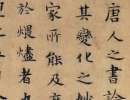 唐人之書論
其變化之妙
家所能及
於煨燼者